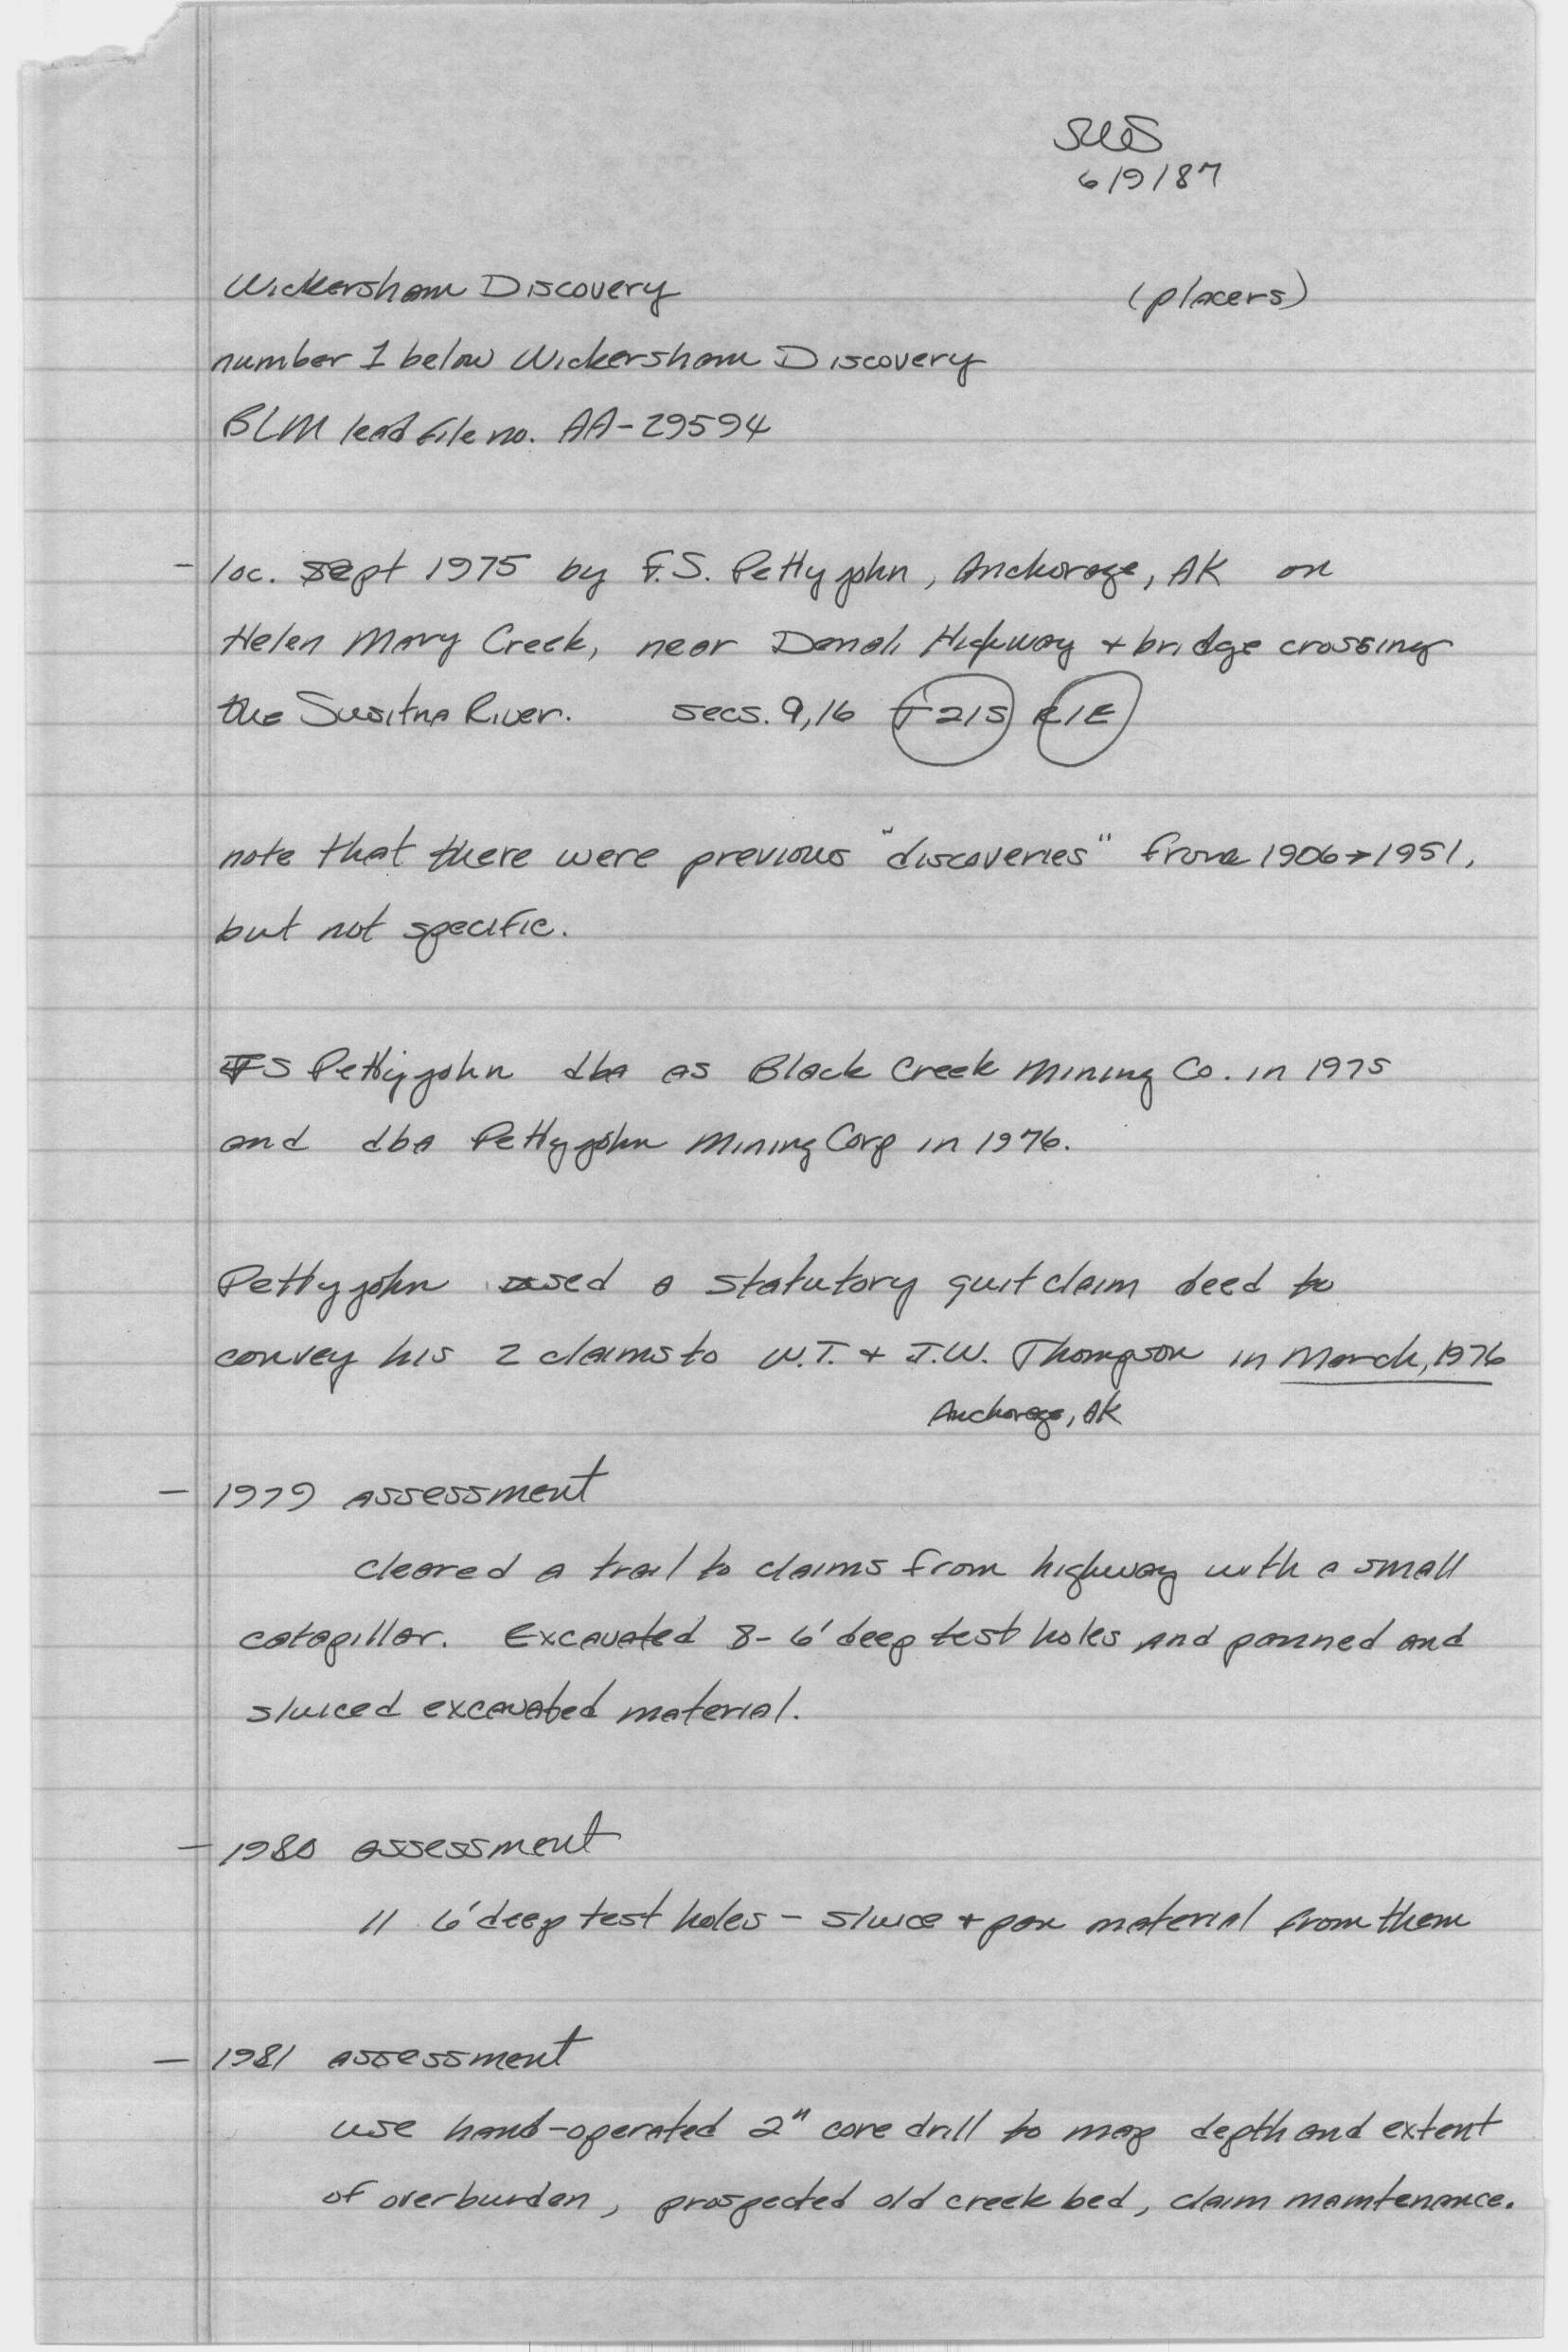 6/9/87
Wickersham Discovery (placers)
number 1 below Wickersham Discovery
BLM lead file no. AA-29594
- loc. Sept 1975 by F.S. Pettyjohn, Anchorage, AK on
Helen Mary Creek, near Denali Highway + bridge crossing
the Susitna River. secs. 9,16 T21S R1E
note that there were previous "discoveries" from 1906→1951,
but not specific.
FS Pettyjohn dba as Black Creek Mining Co. in 1975
and dba Pettyjohn Mining Corp in 1976.
Pettyjohn used a statutory quitclaim deed to
convey his 2 claims to W.T. + J.W. Thompson in March, 1976
Anchorage, AK
- 1979 assessment
cleared a trail to claims from highway with a small
catapillar. Excavated 8- 6' deep test holes and panned and
sluiced excavated material.
- 1980 assessment
11 6' deep test holes - sluice + pan material from them
- 1981 assessment
use hand-operated 2" core drill to map depth and extent
of overburden, prospected old creek bed, claim maintenance.